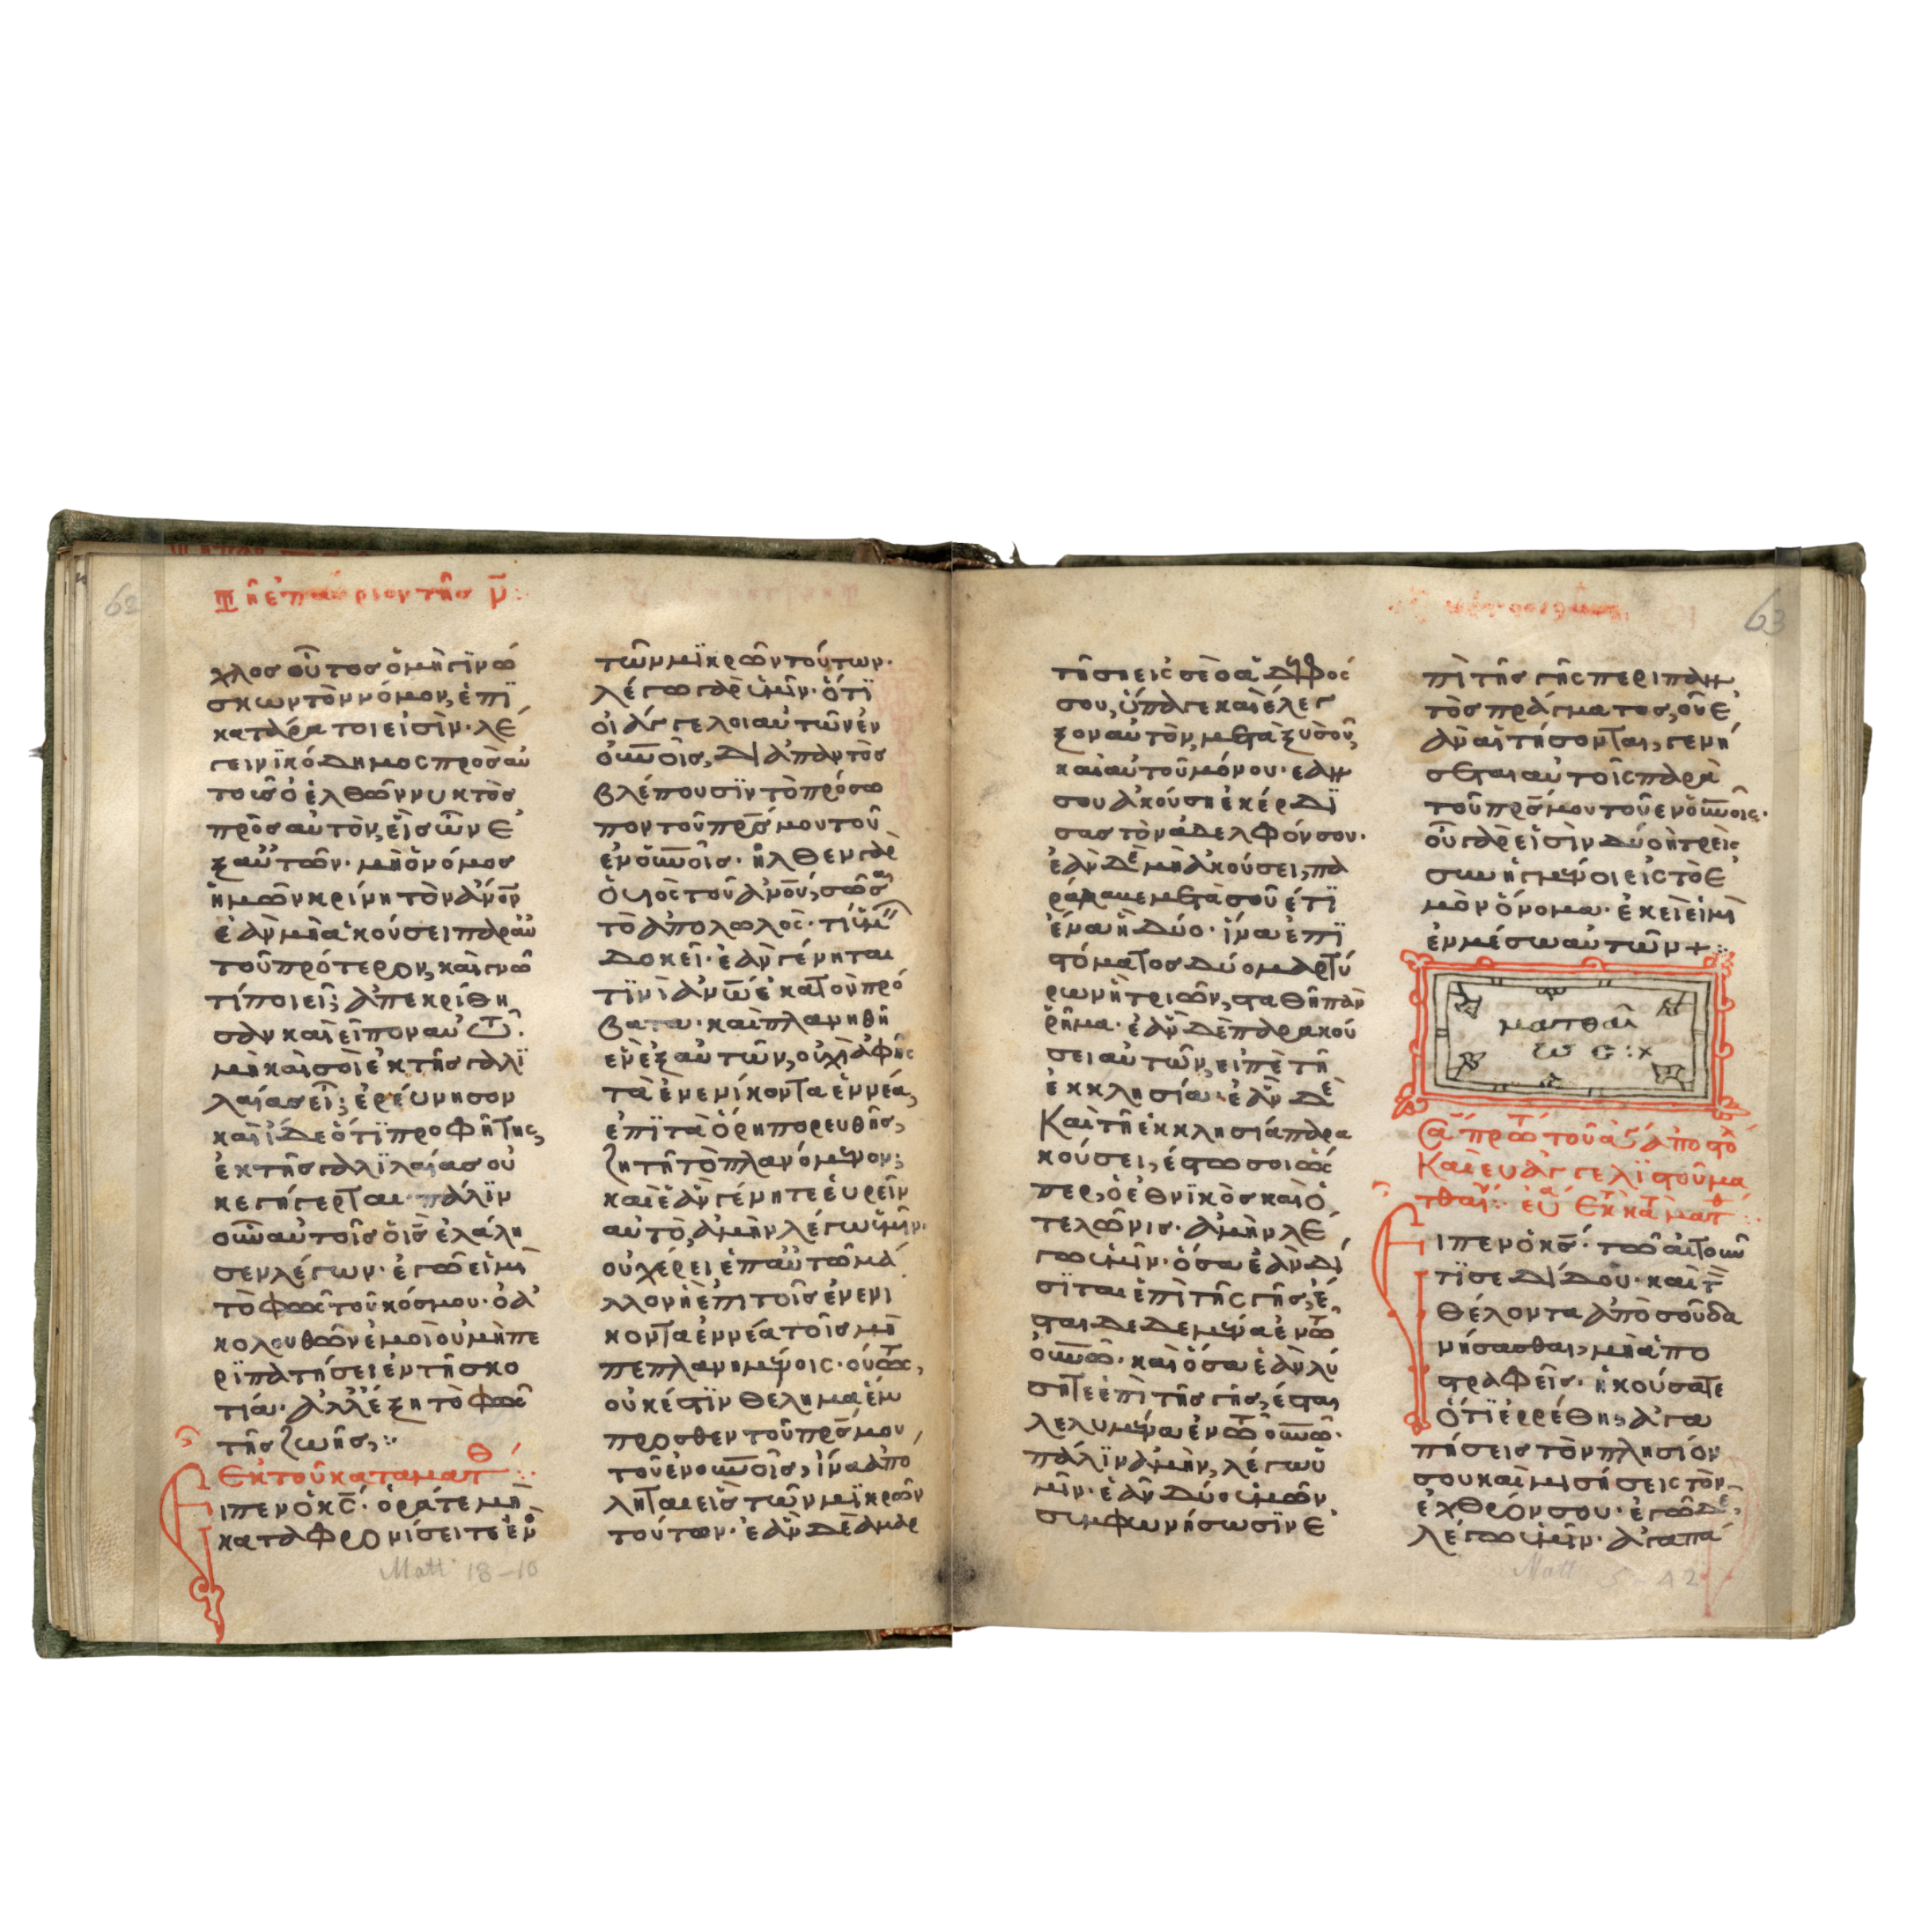 62
Τῆ ἐπαύριον τῆς ν̄:
χλος οὗτος ὁ μὴ γινώ
σκων τὸν νόμον, ἐπϊ
κατάρατοι εἰσὶν· λέ
γει νϊκόδημος πρὸς αὐ
τοὺς ὁ ἐλθὼν νυκτὸς
πρὸς αὐτὸν, εἷς ὢν ἐ
ξ αὐτῶν· μὴ ὁ νόμος
ἡμῶν κρίνη τὸν ἀν̅ον
ἐὰν μὴ ἀκούσει παρ αὐ
τοῦ πρότερον, καὶ γνῶ
τί ποιεῖ; ἀπεκρίθη
σαν καὶ εἶπον αὐτῶ·
μὴ καὶ σοὶ ἐκ τῆς γαλϊ
λαίας εἶ; ἐρεύνησον
καὶ ἴδε ὅτϊ προφήτης,
ἐκ τῆς γαλϊλαίας οὐ
κ ἐγήγερται· πάλϊν
οὖν αὐτοῖς ὁ ι̅ς̅ ἐλάλη
σεν λέγων· ἐγώ εἰμι
τὸ φῶς τοῦ κόσμου· ὁ ἀ
κολουθῶν ἐμοὶ οὐ μὴ πε
ρϊπατήσει ἐν τῆ σκο
τία· ἀλλ ἕξη τὸ φῶς
τῆς ζωῆς,:
Ἐκ τοῦ κατα ματθ:
Εἶπεν ὁ κ̅ς̅· ὁρᾶτε μὴ
καταφρονίσειτε ἑν̀
Matt 18-10
τῶν μϊκρῶν τούτων·
λέγω γὰρ ὑμῖν· ὅτϊ
οἱ ἄγγελοι αὐτῶν ἐν
οὐν̅οῖς, διἀπαντὸς
βλέπουσϊν τὸ πρόσω
πον τοῦ πρ̅ς μου τοῦ
ἐν οὐν̅οῖς· ἦλθεν γὰρ
ὁ υἱὸς τοῦ ἀν̅ου, σῶσαι
τὸ ἀπολωλός· τί ὑμῖν
δοκεῖ· ἐὰν γένηται
τϊνὶ ἀν̅ω ἑκατὸν πρό
βατα· καὶ πλανηθῆ
ἓν ἐξ αὐτῶν, οὐχὶ ἀφῆς
τὰ ἐνενίκοντα ἐννέα,
ἐπϊ τὰ ὄρη πορευθῆς,
ζητῆ τὸ πλανόμενον;
καὶ ἐὰν γένητε εὑρεῖν
αὐτὸ, ἀμὴν λέγω ὑμῖν·
οὐ χέρει ἐπ αὐτῶ μᾶ
λλον ἢ ἐπι τοῖς ἐνενι
κοντα ἐννέα τοῖς μὴ
πεπλανημένοις· οὕτως,
οὐκ ἔστϊν θέλημα ἐμ
προσθεν τοῦ πρ̅ς μου,
τοῦ ἐν οὐν̅οῖς, ἵνα ἀπο
ληται εἷς τῶν μϊκρῶν
τούτων· ἐὰν δὲ ἁμαρ
63
τήση εἰς σὲ ὁ ἀδελφός
σου, ὕπαγε καὶ ἔλεγ
ξον αὐτὸν, μεταξὺ σοῦ,
καὶ αὐτοῦ μόνου· ἐάν
σου ἀκούση ἐκέρδϊ
σας τὸν ἀδελφόν σου·
ἐὰν δὲ μὴ ἀκούσει, πα
ράλαμε μετὰ σοῦ ἔτϊ
ἕνα ἢ δύο· ἵνα ἐπϊ
στόματος δύο μαρτύ
ρων ἢ τριῶν, σταθῆ πᾶν
ῥῆμα· ἐὰν δὲ παρακού
σει αὐτῶν, εἰπὲ τῆ
ἐκκλησία· ἐὰν δὲ
Καὶ τῆ ἐκκλησία παρα
κούσει, ἔστω σοι ὥς
περ, ὁ ἐθνϊκὸς καὶ ὁ
τελώνις· ἀμὴν λέ
γω ὑμῖν· ὅσα ἐὰν δί
σϊται ἐπὶ τῆς γῆς, ἔ
σται δεδεμένα ἐν τῶ
οὐν̅ῶ· καὶ ὅσα ἐὰν λύ
σητε ἐπὶ τῆς γῆς, ἔσται
λελυμένα ἐν τῶ οὐν̅ῶ·
πάλϊν ἀμὴν, λέγω ὑ
μῖν· ἐὰν δύο ὑμῶν
συμφωνήσωσϊν ἐ
πὶ τῆς γῆς περι παν
τὸς πράγματος, οὗ ἐ
ὰν αἰτήσονται, γενή
σεται αὐτοῖς παρὰ
τοῦ πρ̅ς μου τοῦ ἐν οὐν̅οῖς·
οὗ γάρ εἰσὶν δύο ἢ τρεῖς
συνηγμένοι εἰς τὸ ἐ
μὸν ὄνομα· ἐκεῖ εἰμὶ
ἐν μέσω αὐτῶν +:
ματθαῖ
ω ς :x
Καὶ εὐαγγελϊστοῦ μα
Εἶπεν ὁ κ̅ς̅· τῶ αἰτοῦν
τϊ σε δίδου· καὶ τ
θέλοντα ἀπὸ σοῦ δα
νήσασθαι, μὴ ἀπο
στραφεῖς· ἠκούσατε
ὅτϊ ἐρρέθη, ἀγα
πήσεις τὸν πλησίον
σου καὶ μισήσεις τὸν
ἐχθρόν σου· ἐγὼ δὲ,
λέγω ὑμῖν· ἀγαπᾶ
Matt 5-42